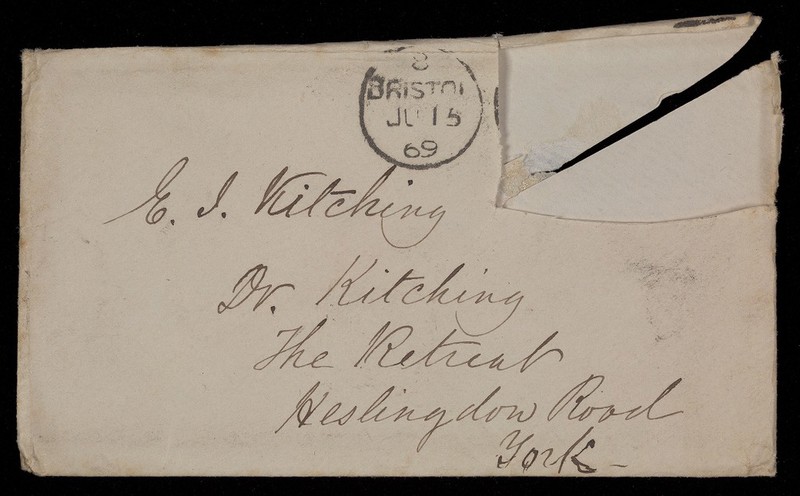 8
BRISTOL
JU 15
69
E. J. Kitching
Dr. Kitching
The Retreat
Heslingdon Road
York